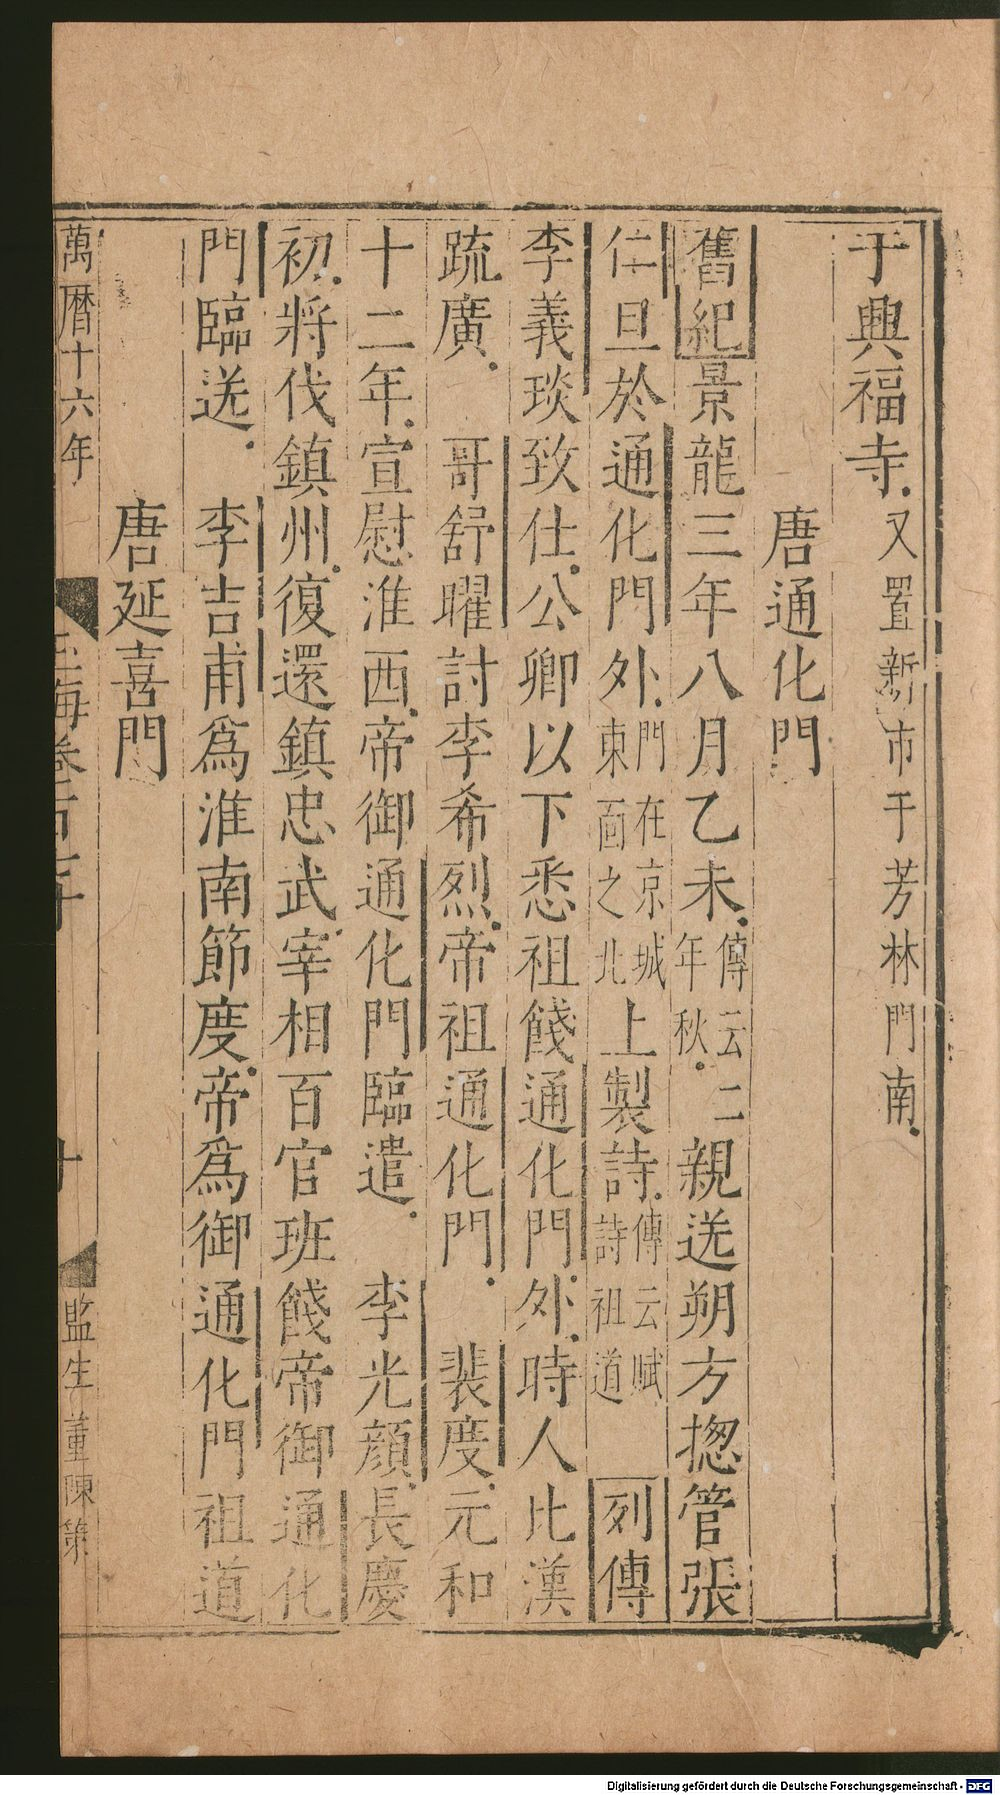 于興福寺又置新市于芳林門南
唐通化門
舊紀景龍三年八月乙未傳云二年秋親送朔方揔管張
仁亶於通化門外門在京城東面之北上製詩傳云賦詩祖道列傳
李義琰致仕公卿以下悉祖餞通化門外時人比漢
疏廣 哥舒曜討李希烈帝祖通化門 裴度元和
十二年宣慰淮西帝御通化門臨遣 李光顔長慶
初將伐鎮州復還鎮忠武宰相百官班餞帝御通化
門臨送 李吉甫爲淮南節度帝爲御通化門祖道
唐延喜門
萬曆十六年
玉海卷百七十
十
監生董陳策
Digitalisierung gefördert durch die Deutsche Forschungsgemeinschaft - DFG